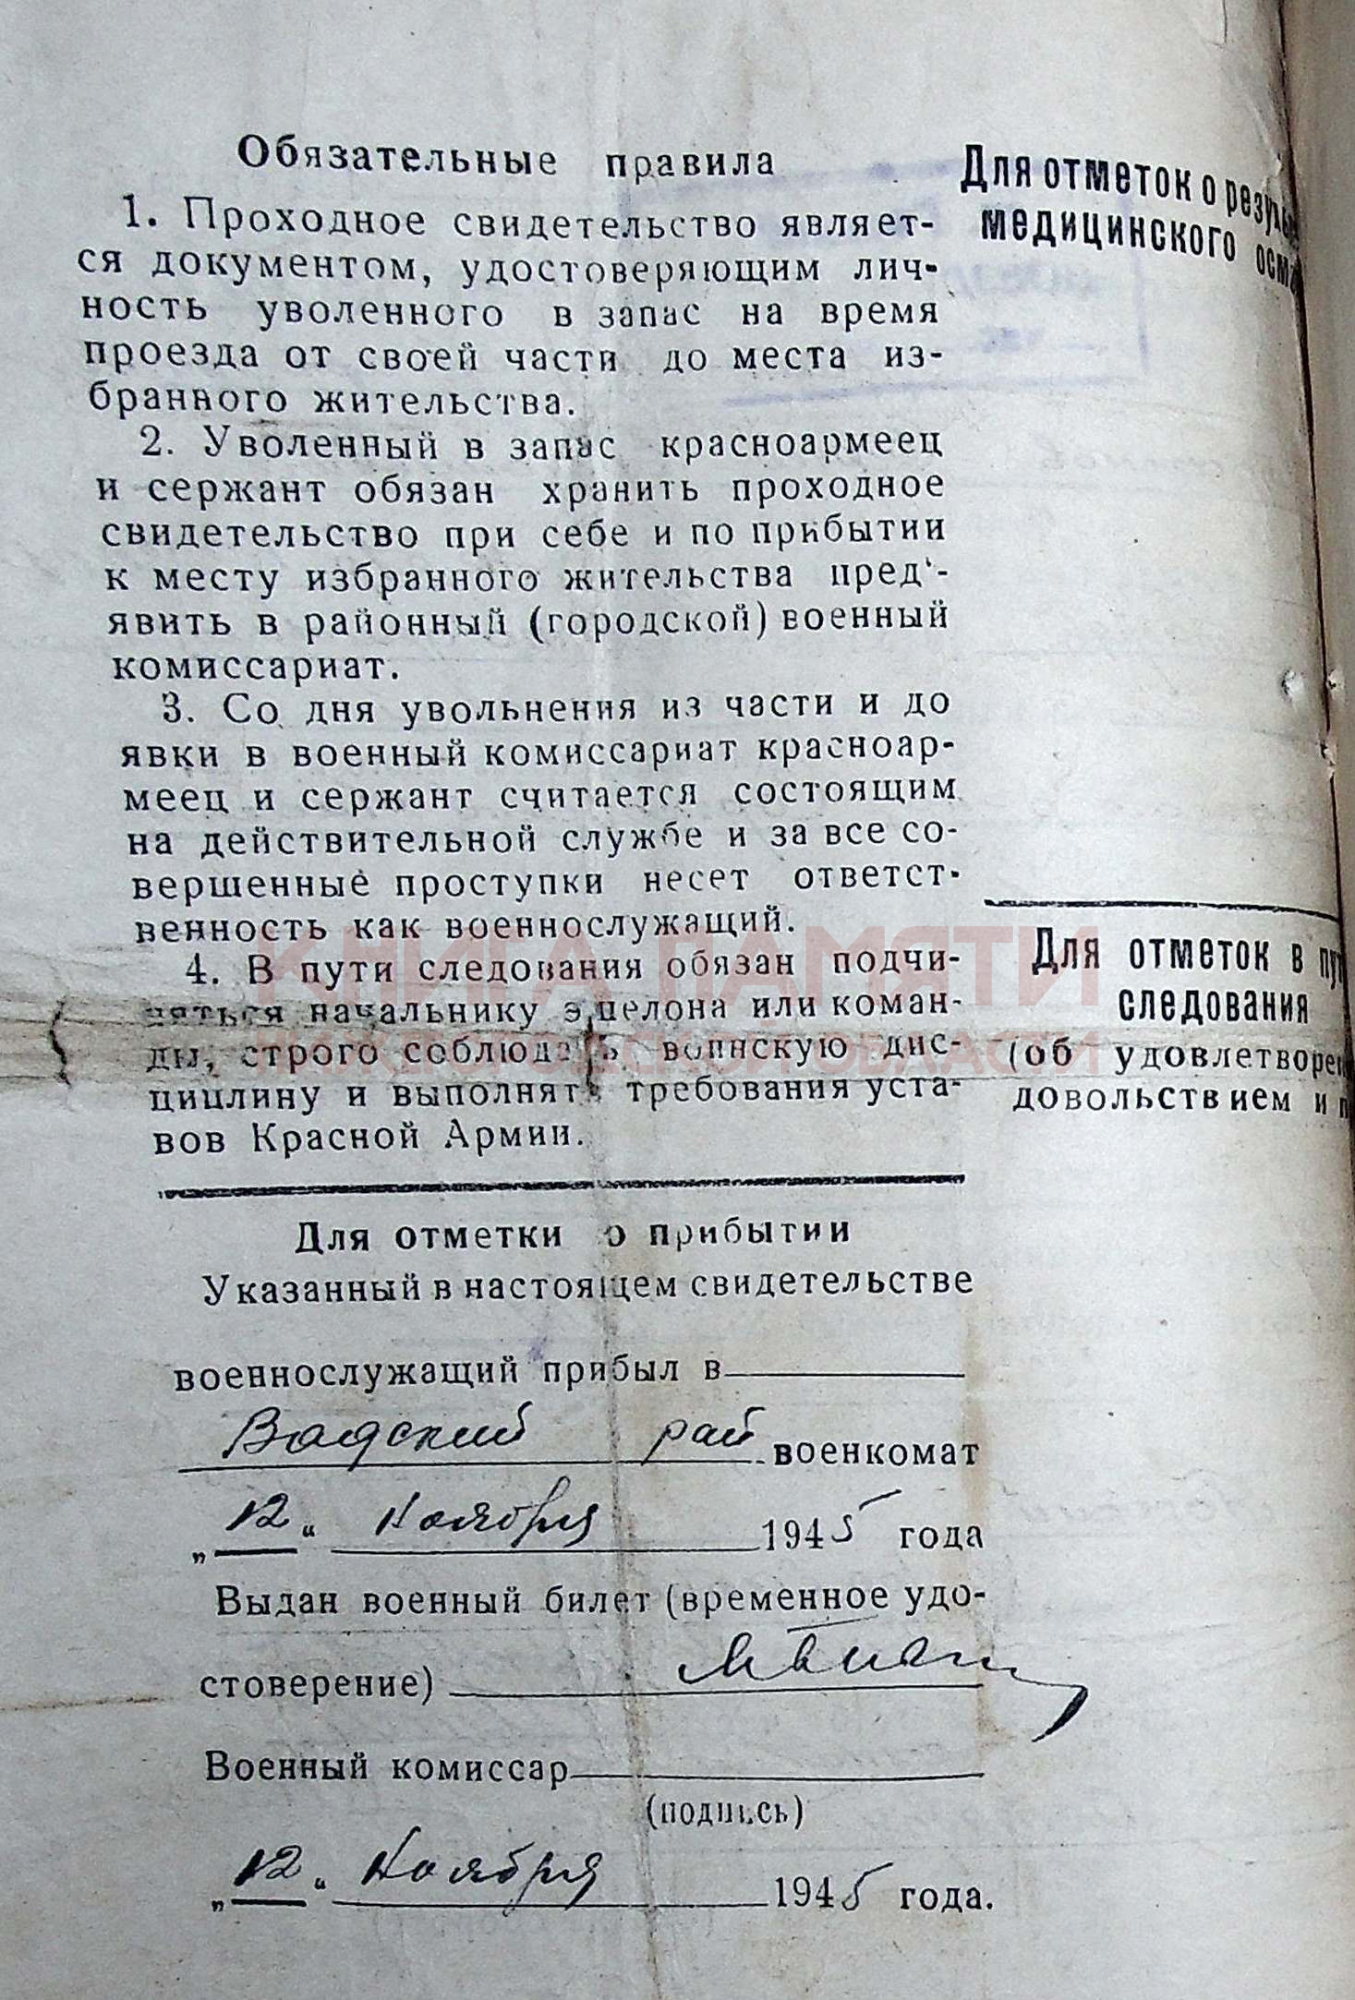 Обязательные правила
1. Проходное свидетельство являет-
ся документом, удостоверяющим лич-
ность уволенного в запас на время
проезда от своей части до места из-
бранного жительства.
2. Уволенный в запас красноармеец
и сержант обязан хранить проходное
свидетельство при себе и по прибытии
к месту избранного жительства пред'-
явить в районный (городской) военный
комиссариат.
3. Со дня увольнения из части и до
явки в военный комиссариат красноар-
меец и сержант считается состоящим
на действительной службе и за все со-
вершенные проступки несет ответст-
венность как военнослужащий.
4. В пути следования обязан подчи-
няться начальнику эшелона или коман-
ды, строго соблюдать воинскую дис-
циплину и выполнять требования уста-
вов Красной Армии.
Для отметки о прибытии
Указанный в настоящем свидетельстве
военнослужащий прибыл в
Вадский рай военкомат
„12“ Ноября 1945 года
Выдан военный билет (временное удо-
стоверение)
Военный комиссар
(подпись)
„12“ Ноября 1945 года.
Для отметок о резуль
медицинского осм
Для отметок в пут
следования
(об удовлетворен
довольствием и п
КНИГА ПАМЯТИ
НИЖЕГОРОДСКОЙ ОБЛАСТИ